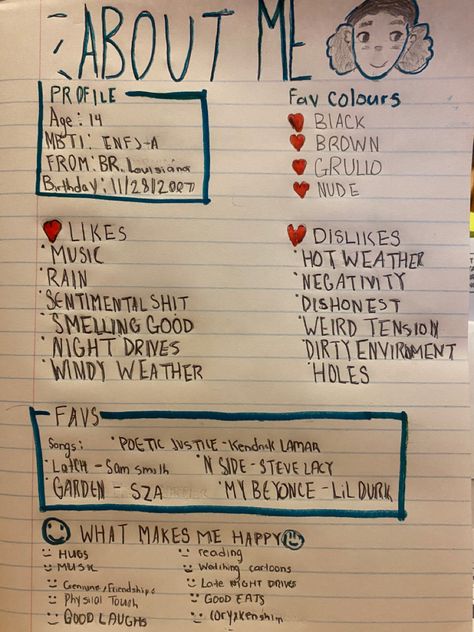 ABOUT ME
PROFILE
Age: 14
MBTI: ENFJ-A
FROM: BR, Louisiana
Birthday: 11/28/2007
Fav Colours
BlACK
BROWN
GRULLO
NUDE
LIKES
MUSIC
RAIN
SENTIMENTAL SHIT
SMELLING GOOD
NIGHT DRIVES
WINDY WEATHER
DISLIKES
HOT WEATHER
NEGATIVITY
DISHONEST
WEIRD TENSION
DIRTY ENVIROMENT
HOLES
FAVS
Songs: POETIC JUSTICE - Kendrick LAMAR
Latch - Sam smith N SIDE - STEVE LACY
GARDEN - SZA MY BEYONCE - LiL DURK
WHAT MAKES ME HAPPY
HUGS
MUSIC
Genuine friendships
Physical Touch
GOOD LAUGHS
reading
Watching cartoons
Late NIGHT DRIVE
GOOD EATS
COryxkenshin